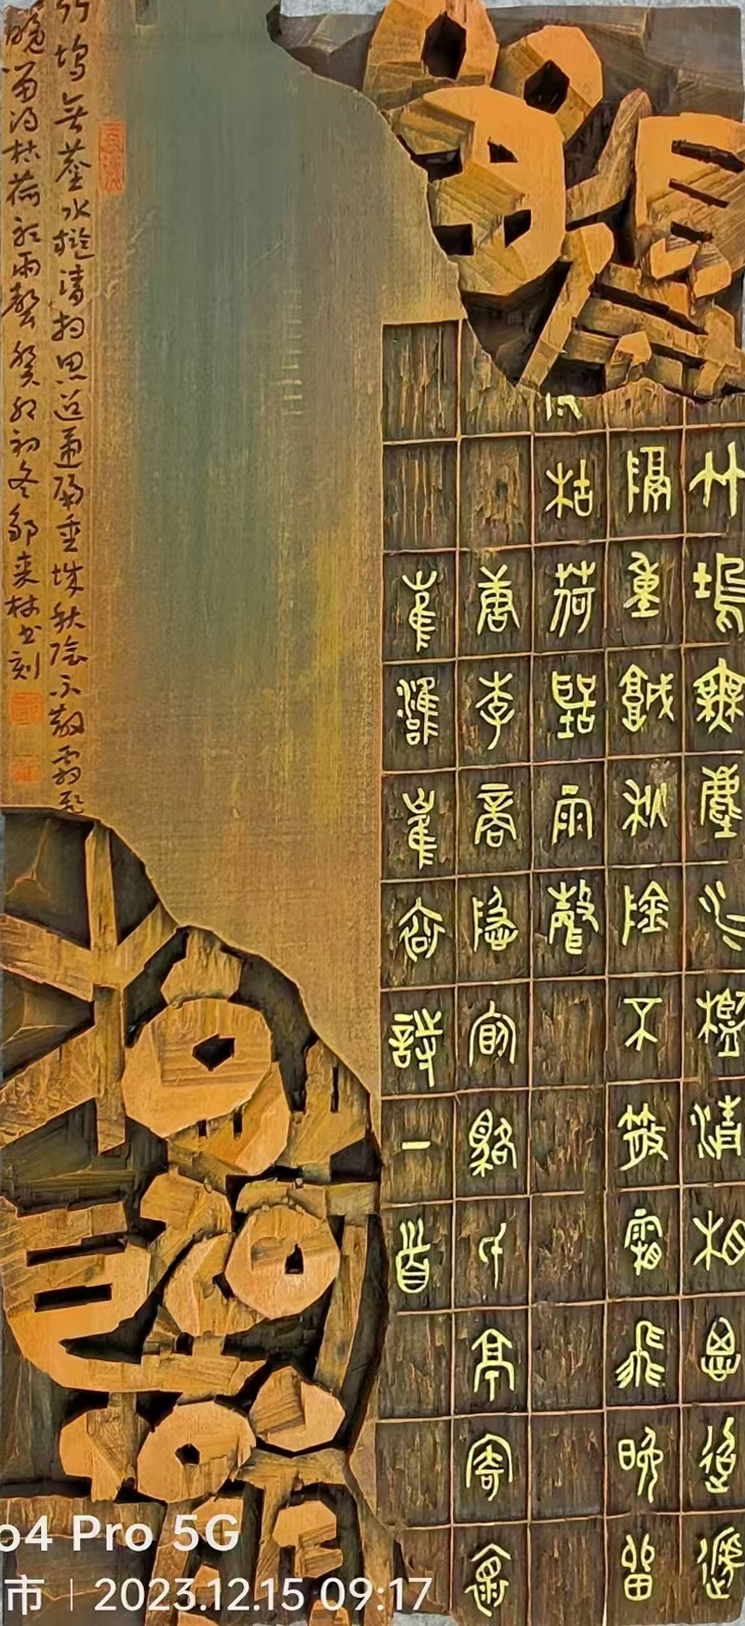 竹塢無塵水檻清相思迢遞
隔重城秋陰不散霜飛晚留
枯荷聽雨聲
唐李商隱宿駱氏亭寄懷
崔雍崔袞詩一首
竹塢无塵水檻清相思迢遞隔重城秋陰不散霜飛
晚留得枯荷聽雨聲癸卯初冬鄒来林書刻
o4 Pro 5G
市 | 2023.12.15 09:17